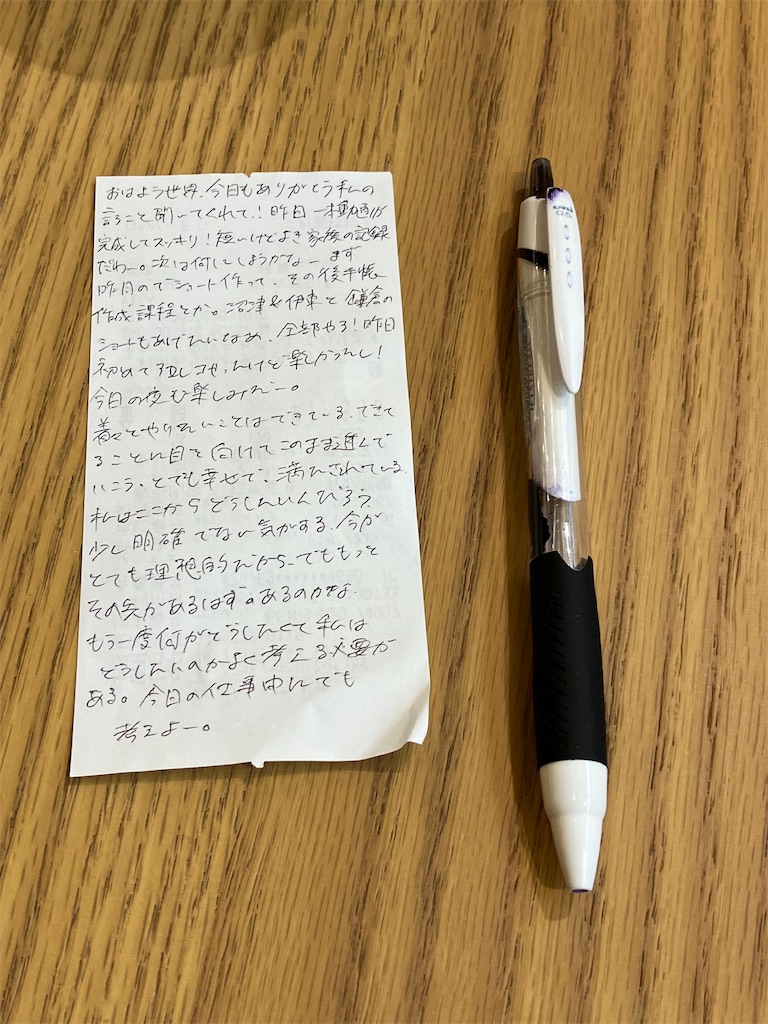 おはよう世界、今日もありがとう私の
言うこと聞いてくれて！昨日一種動画が
完成してスッキリ！短いけどよき家族の記録
だわー。次は何にしようかなーまず
昨月のでショート作って、その後手帳
作成課程とか。沼津&伊東と鎌倉の
ショートもあげたいなぁ、全部やろ！昨日
初めて けど楽しかったし！
今日の夜も楽しみだー。
着々とやりたいことはできている、できて
ることに目を向けてこのまま進んで
いこう、とても幸せで、満たされている、
私はここからどうしたいんだろう、
少し明確でない気がする、今が
とても理想的だから、でももっと
その先があるはず。あるのかな、
もう一度何がどうしたくて私は
どうしたいのかよく考える必要が
ある。今日の仕事中にでも
考えよー。
uni
0.5